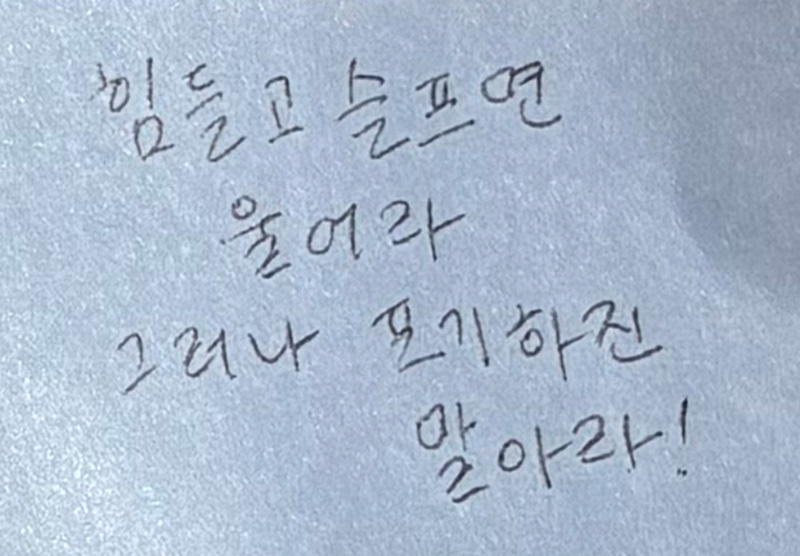 힘들고 슬프면
울어라
그러나 포기하진
말아라!